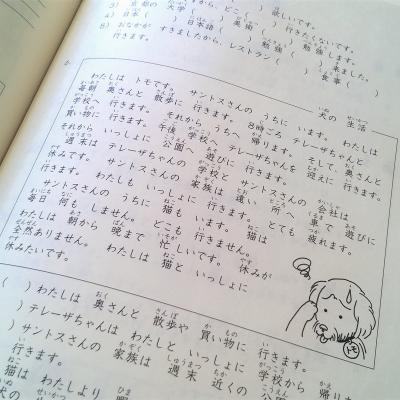 犬の 生活
わたしは トモです。 サントスさんの うちに います。 わたしは
毎朝 奥さんと 散歩に 行きます。 8時ごろ テレーザちゃんと
学校へ 行きます。 それから うちへ 帰ります。 そして、 奥さんと
買い物に 行きます。 午後 学校へ テレーザちゃんを 迎えに 行きます。
それから いっしょに 公園へ 遊びに 行きます。
週末は テレーザちゃんの 学校と サントスさんの 会社は
休みです。 サントスさんの 家族は 遠い 所へ 車で 遊びに
行きます。 わたしも いっしょに 行きます。 とても 疲れます。
サントスさんの うちに 猫も います。 猫は
毎日 何も しません。 どこも 行きません。
わたしは 朝から 晩まで 忙しいです。 休みが
全然 ありません。 わたしは 猫と いっしょに
休みたいです。
トモ
( ) わたしは 奥さんと 散歩や 買い物に 行きます。
) テレーザちゃんは わたしと いっしょに 学校から
) サントスさんの 家族は 週末 近くの 公園へ
行きます。
猫は わたしより